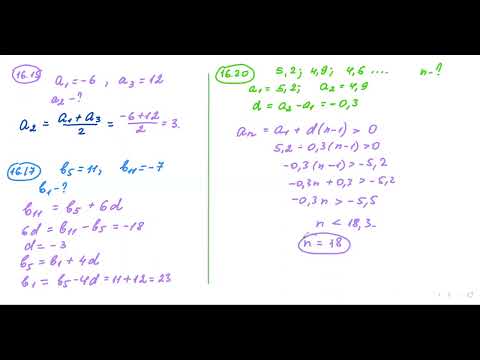 16.15 a₁=-6 , a₃=12
a₂-?
a₂ = (a₁+a₃)/2 = (-6+12)/2 = 3.
16.17 b₅=11, b₁₁=-7
b₁-?
b₁₁ = b₅ + 6d
6d = b₁₁ - b₅ = -18
d = -3
b₅ = b₁ + 4d
b₁ = b₅ - 4d = 11+12 = 23
16.20 5,2; 4,9; 4,6 .... n-?
a₁=5,2; a₂=4,9
d = a₂-a₁ = -0,3
aₙ = a₁ + d(n-1) > 0
5,2 - 0,3(n-1) > 0
-0,3(n-1) > -5,2
-0,3n + 0,3 > -5,2
-0,3n > -5,5
n < 18,3..
n = 18